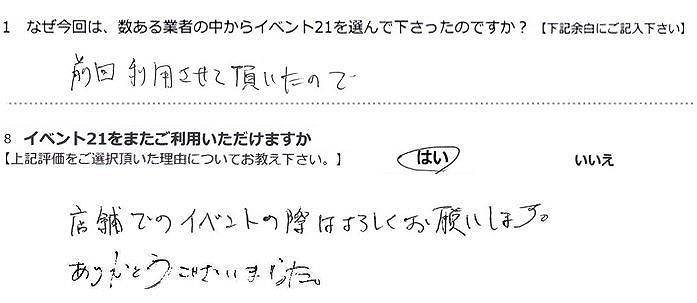 1 なぜ今回は、数ある業者の中からイベント21を選んで下さったのですか？【下記余白にご記入下さい】
前回利用させて頂いたので
8 イベント21をまたご利用いただけますか
【上記評価をご選択頂いた理由についてお教え下さい。】 はい いいえ
店舗でのイベントの際はよろしくお願いします。
ありがとうございました。